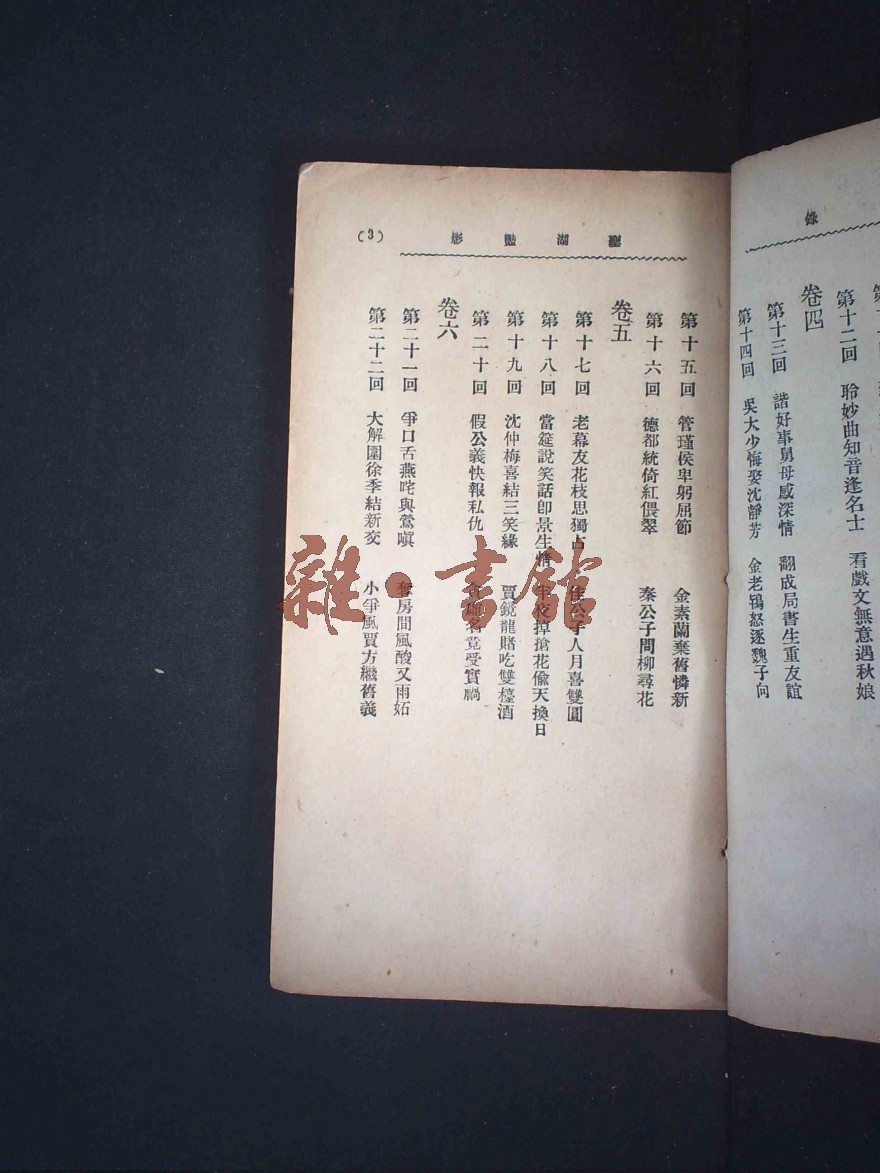 錄
第十二回 聆妙曲知音逢名士 看戲文無意遇秋娘
卷四
第十三回 諧好事舅母感深情 翻成局書生重友誼
第十四回 吳大少悔娶沈靜芳 金老鴇怒逐魏子向
影艷湖
(3)
第十五回 管瑾侯卑躬屈節 金素蘭棄舊憐新
第十六回 德都統倚紅偎翠 秦公子問柳尋花
卷五
第十七回 老幕友花枝思獨占 公子人月喜雙圓
第十八回 當筵說笑話卽景生情 半夜掉搶花偷天換日
第十九回 沈仲梅喜結三笑緣 賈鏡龍賭吃雙檯酒
第二十回 假公義快報私仇 名竟受實禍
卷六
第二十一回 爭口舌燕咤與鶯嗔 房間風酸又雨妬
第二十二回 大解圍徐季結新交 小爭風賈方繼舊義
雜·書館